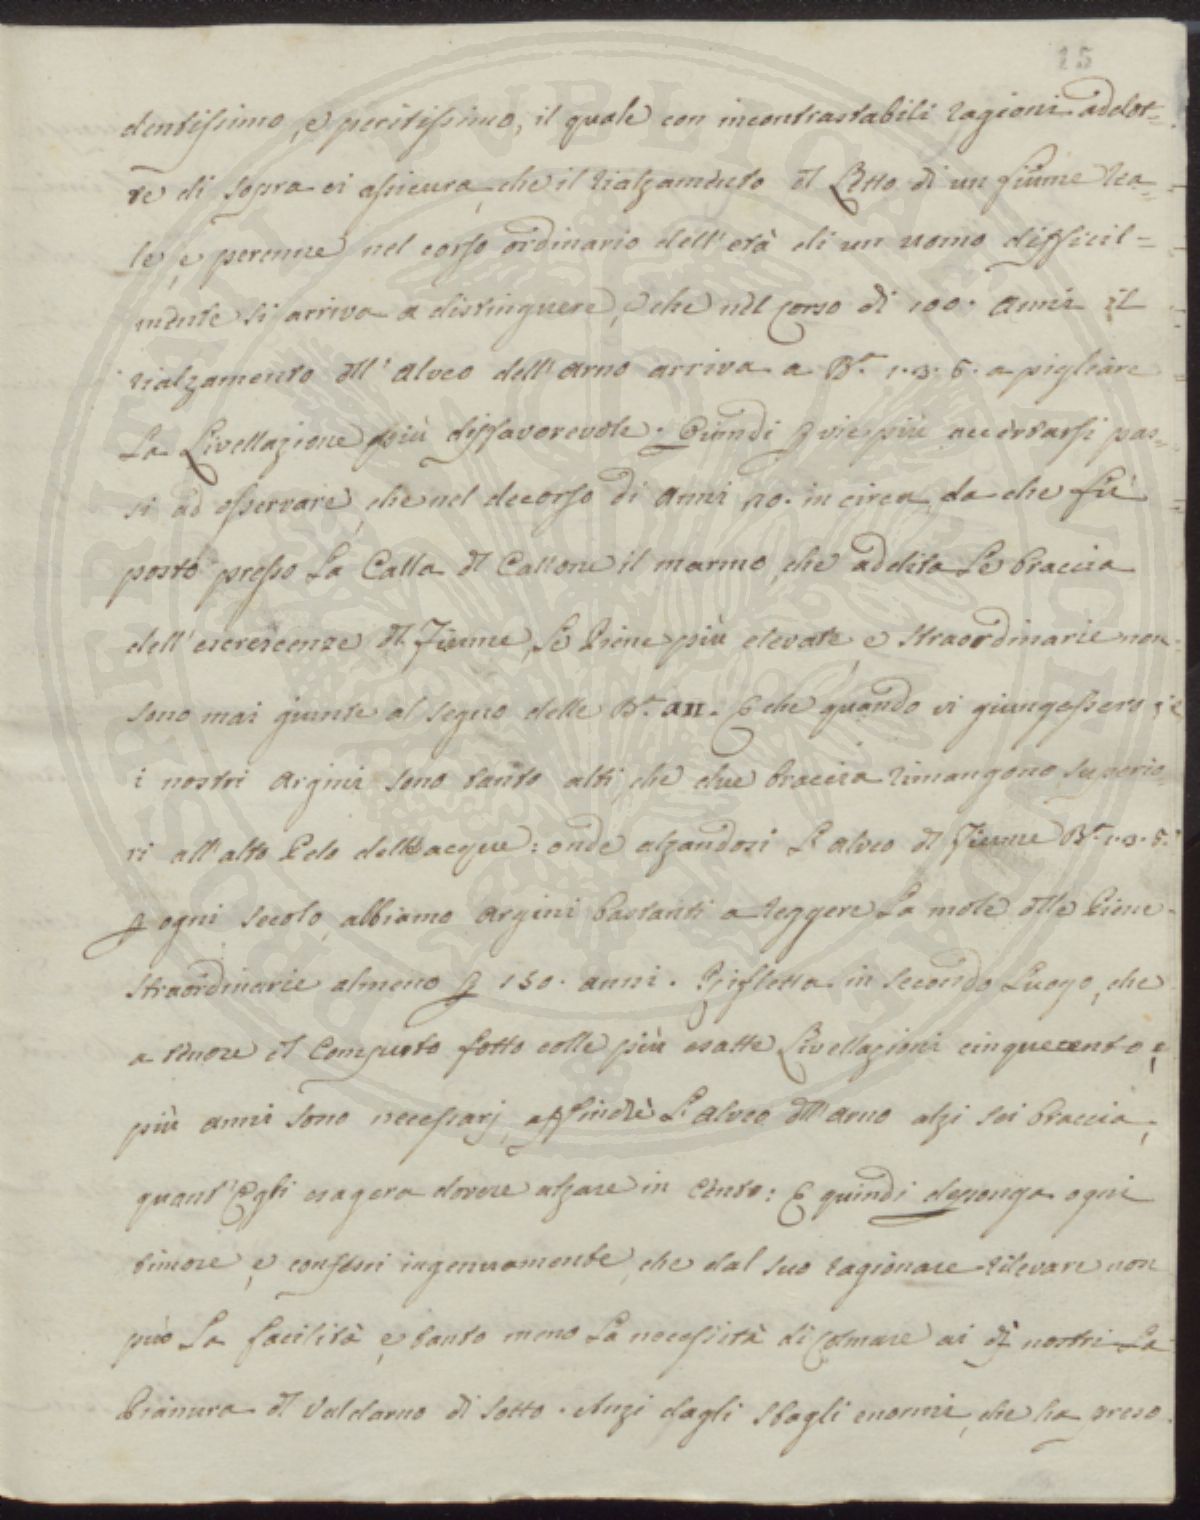 15
dentissimo, e peritissimo, il quale con incontrastabili ragioni addot=
te di sopra ci assicura, che il rialzamento del Letto di un fiume rea=
le, e perenne nel corso ordinario dell'età di un uomo difficil=
mente si arriva a distinguere, e che nel corso di 100. anni il
rialzamento dell'Alveo dell'Arno arriva a Ba. 1.3.6. a pigliare
La Livellazione più disfavorevole. Quindi p vie più accertarsi pas=
si ad osservare, che nel decorso di anni 70. in circa, da che fù
posto presso La Calla del Callone il marmo, che addita Le braccia
dell'escrescenze del Fiume, Le Piene più elevate, e straordinarie non
sono mai giunte al segno delle Ba. XII. E che quando vi giungessero,
i nostri Argini sono tanto alti, che due braccia rimangono superio=
ri all'alto Pelo dell'acque: onde alzandosi L'alveo del Fiume Ba. 1.3.6.
p ogni secolo, abbiamo Argini bastanti a reggere La mole delle Piene
straordinarie almeno p 150. anni. Rifletta in secondo Luogo, che
a tenore del Computo fatto colle più esatte Livellazioni cinquecento, e
più anni sono necessarj, affinchè L'Alveo dell'Arno alzi sei braccia,
quant'Egli esagera dovere alzare in Cento: E quindi deponga ogni
timore, e confessi ingenuamente, che dal suo ragionare rilevare non
può La facilità, e tanto meno La necessità di Colmare ai dì nostri La
Pianura del Valdarno di Sotto. Anzi dagli sbagli enormi, che ha preso
PUBLICAE